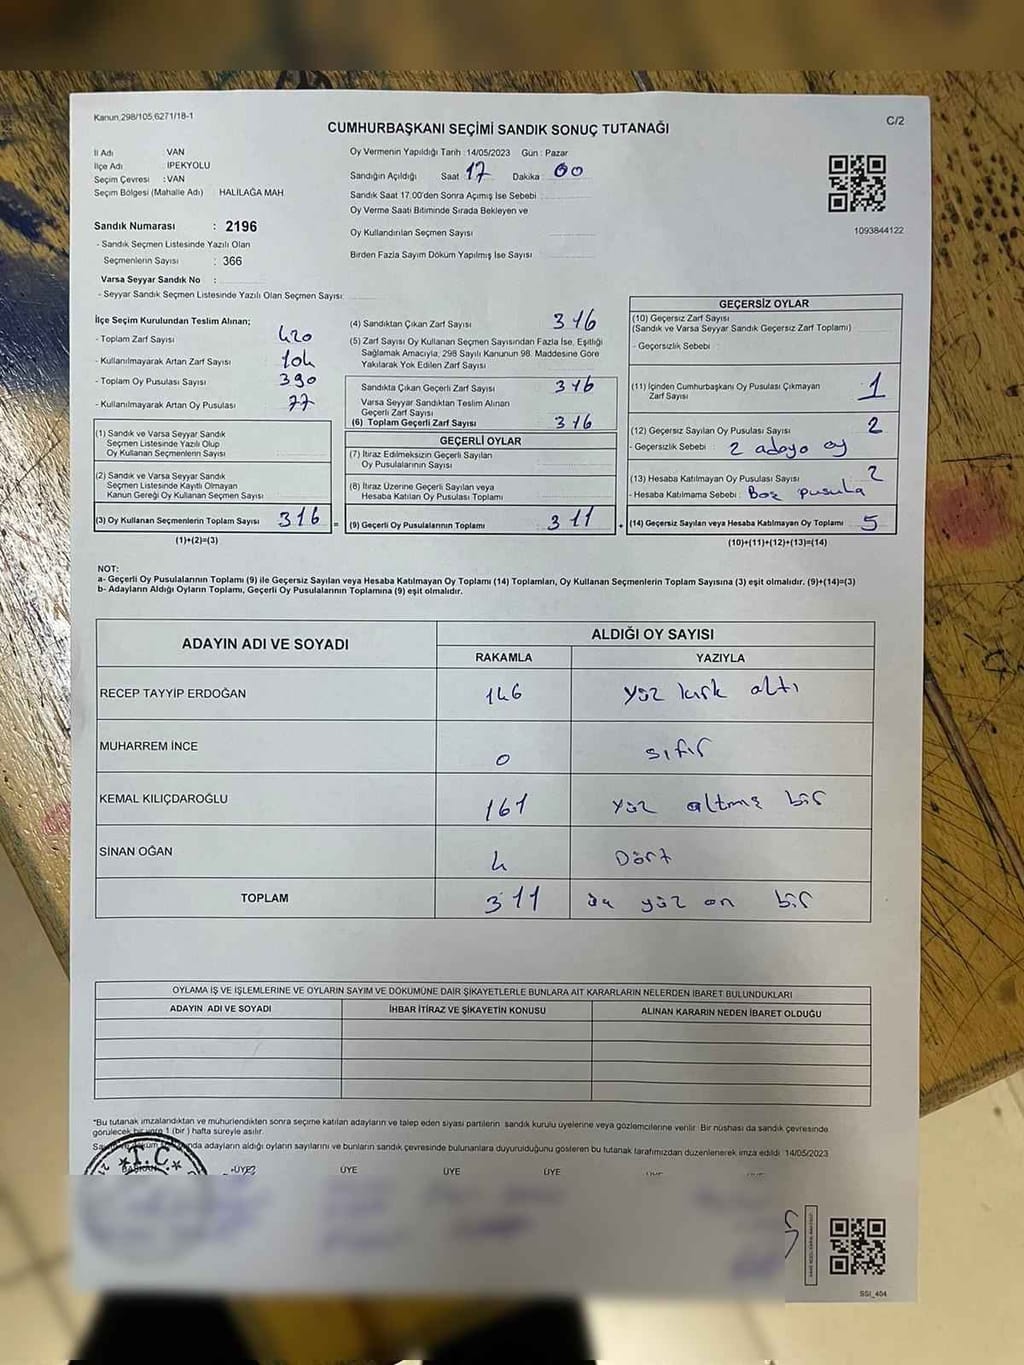 Kanun,298/105,6271/18-1
C/2
CUMHURBAŞKANI SEÇİMİ SANDIK SONUÇ TUTANAĞI
İl Adı : VAN
İlçe Adı : İPEKYOLU
Seçim Çevresi : VAN
Seçim Bölgesi (Mahalle Adı) HALİLAĞA MAH
Sandık Numarası : 2196
- Sandık Seçmen Listesinde Yazılı Olan
Seçmenlerin Sayısı : 366
Varsa Seyyar Sandık No :
- Seyyar Sandık Seçmen Listesinde Yazılı Olan Seçmen Sayısı:
Oy Vermenin Yapıldığı Tarih :14/05/2023 Gün : Pazar
Sandığın Açıldığı Saat 17 Dakika : 00
Sandık Saat 17.00'den Sonra Açılmış İse Sebebi :
Oy Verme Saati Bitiminde Sırada Bekleyen ve
Oy Kullandırılan Seçmen Sayısı
Birden Fazla Sayım Döküm Yapılmış İse Sayısı
1093844122
İlçe Seçim Kurulundan Teslim Alınan;
- Toplam Zarf Sayısı 420
- Kullanılmayarak Artan Zarf Sayısı 104
- Toplam Oy Pusulası Sayısı 390
- Kullanılmayarak Artan Oy Pusulası 77
(1) Sandık ve Varsa Seyyar Sandık
Seçmen Listesinde Yazılı Olup
Oy Kullanan Seçmenlerin Sayısı
(2) Sandık ve Varsa Seyyar Sandık
Seçmen Listesinde Kayıtlı Olmayan
Kanun Gereği Oy Kullanan Seçmen Sayısı
(3) Oy Kullanan Seçmenlerin Toplam Sayısı 316 =
(1)+(2)=(3)
(4) Sandıktan Çıkan Zarf Sayısı 316
(5) Zarf Sayısı Oy Kullanan Seçmen Sayısından Fazla İse, Eşitliği
Sağlamak Amacıyla, 298 Sayılı Kanunun 98. Maddesine Göre
Yakılarak Yok Edilen Zarf Sayısı
Sandıkta Çıkan Geçerli Zarf Sayısı 316
Varsa Seyyar Sandıktan Teslim Alınan
Geçerli Zarf Sayısı
(6) Toplam Geçerli Zarf Sayısı 316
GEÇERLİ OYLAR
(7) İtiraz Edilmeksizin Geçerli Sayılan
Oy Pusulalarının Sayısı
(8) İtiraz Üzerine Geçerli Sayılan veya
Hesaba Katılan Oy Pusulası Toplamı
(9) Geçerli Oy Pusulalarının Toplamı 311 +
GEÇERSİZ OYLAR
(10) Geçersiz Zarf Sayısı
(Sandık ve Varsa Seyyar Sandık Geçersiz Zarf Toplamı)
- Geçersizlik Sebebi :
(11) İçinden Cumhurbaşkanı Oy Pusulası Çıkmayan
Zarf Sayısı 1
(12) Geçersiz Sayılan Oy Pusulası Sayısı 2
- Geçersizlik Sebebi : 2 adaya oy
(13) Hesaba Katılmayan Oy Pusulası Sayısı 2
- Hesaba Katılmama Sebebi : Boş pusula
(14) Geçersiz Sayılan veya Hesaba Katılmayan Oy Toplamı 5
(10)+(11)+(12)+(13)=(14)
NOT:
a- Geçerli Oy Pusulalarının Toplamı (9) ile Geçersiz Sayılan veya Hesaba Katılmayan Oy Toplamı (14) Toplamları, Oy Kullanan Seçmenlerin Toplam Sayısına (3) eşit olmalıdır. (9)+(14)=(3)
b- Adayların Aldığı Oyların Toplamı, Geçerli Oy Pusulalarının Toplamına (9) eşit olmalıdır.
ADAYIN ADI VE SOYADI ALDIĞI OY SAYISI
RAKAMLA YAZIYLA
RECEP TAYYİP ERDOĞAN 146 Yüz kırk altı
MUHARREM İNCE 0 sıfır
KEMAL KILIÇDAROĞLU 161 Yüz altmış bir
SİNAN OĞAN 4 Dört
TOPLAM 311 üç yüz on bir
OYLAMA İŞ VE İŞLEMLERİNE VE OYLARIN SAYIM VE DÖKÜMÜNE DAİR ŞİKAYETLERLE BUNLARA AİT KARARLARIN NELERDEN İBARET BULUNDUKLARI
ADAYIN ADI VE SOYADI İHBAR İTİRAZ VE ŞİKAYETİN KONUSU ALINAN KARARIN NEDEN İBARET OLDUĞU
*Bu tutanak imzalandıktan ve mühürlendikten sonra seçime katılan adayların ve talep eden siyasi partilerin sandık kurulu üyelerine veya gözlemcilerine verilir. Bir nüshası da sandık çevresinde
görülecek bir yere 1 (bir ) hafta süreyle asılır.
nda adayların aldığı oyların sayılarını ve bunların sandık çevresinde bulunanlara duyurulduğunu gösteren bu tutanak tarafımızdan düzenlenerek imza edildi. 14/05/2023
T.C.
BAŞKAN ÜYE ÜYE ÜYE ÜYE
SSI_404